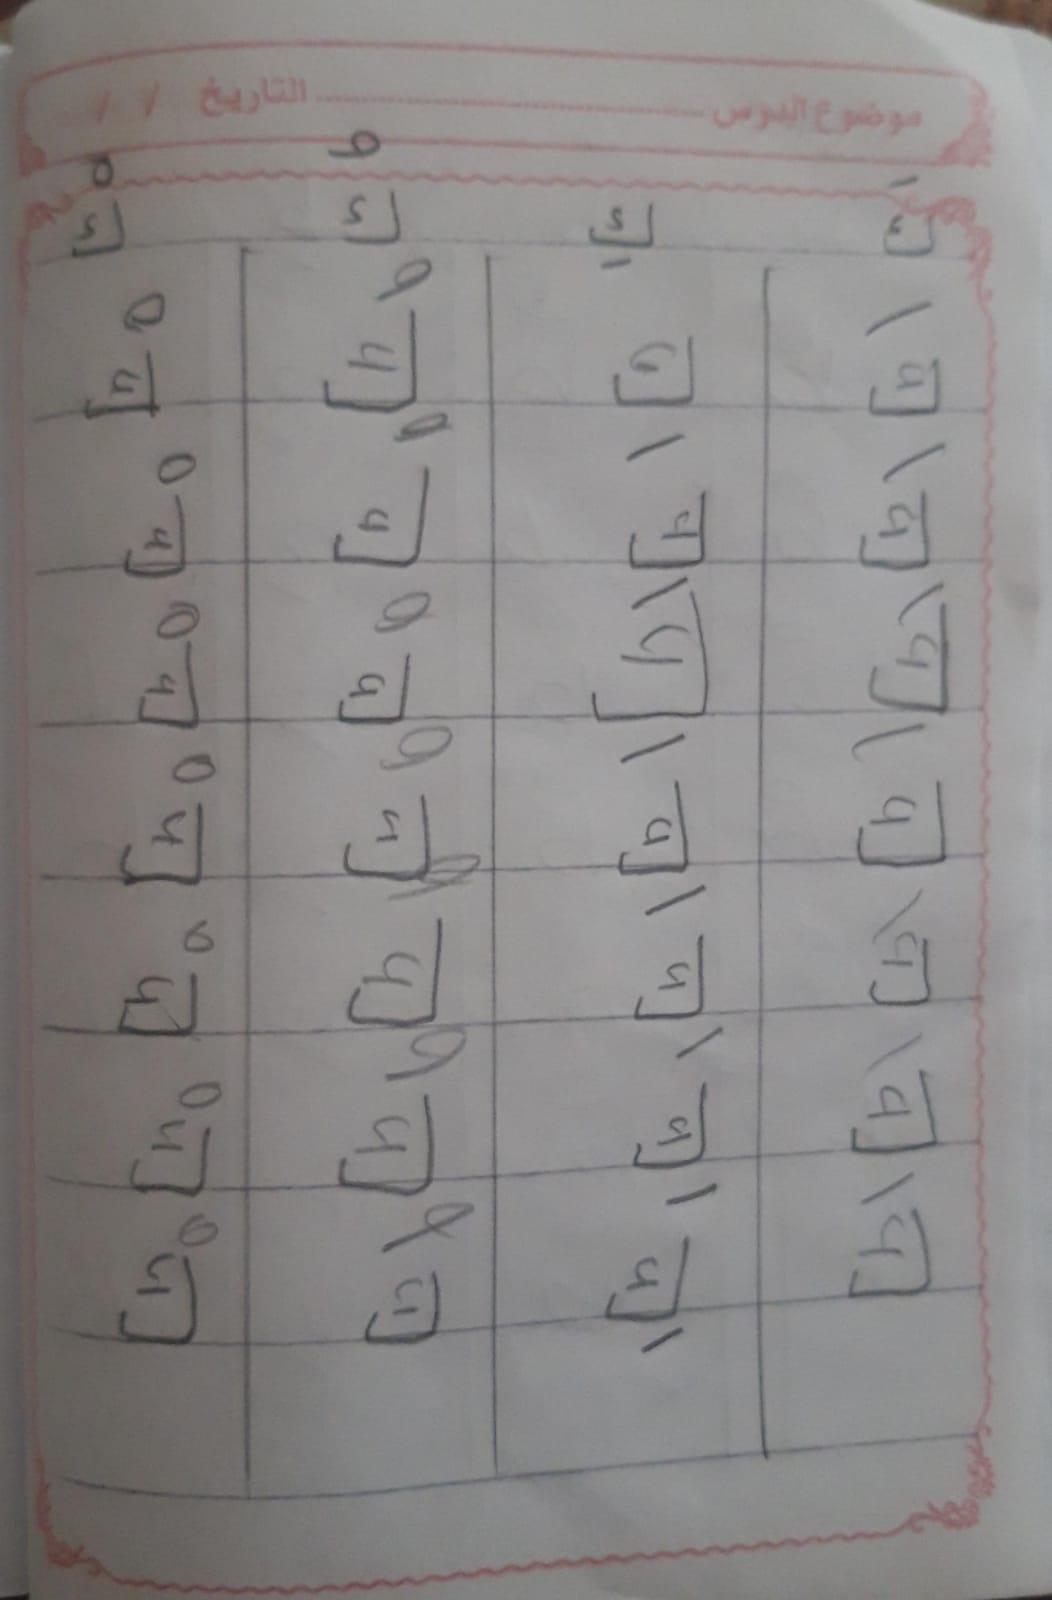 موضوع الدرس ........................ التاريخ / /
كَ كِ كُ كْ
كَ كِ كُ كْ
كَ كِ كُ كْ
كَ كِ كُ كْ
كَ كِ كُ كْ
كَ كِ كُ كْ
كَ كِ كُ كْ
كَ كِ كُ كْ